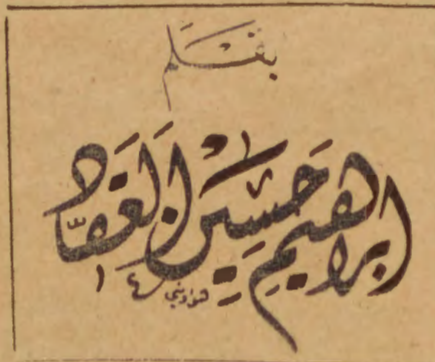 بقلم
ابراهيم حسين العقاد